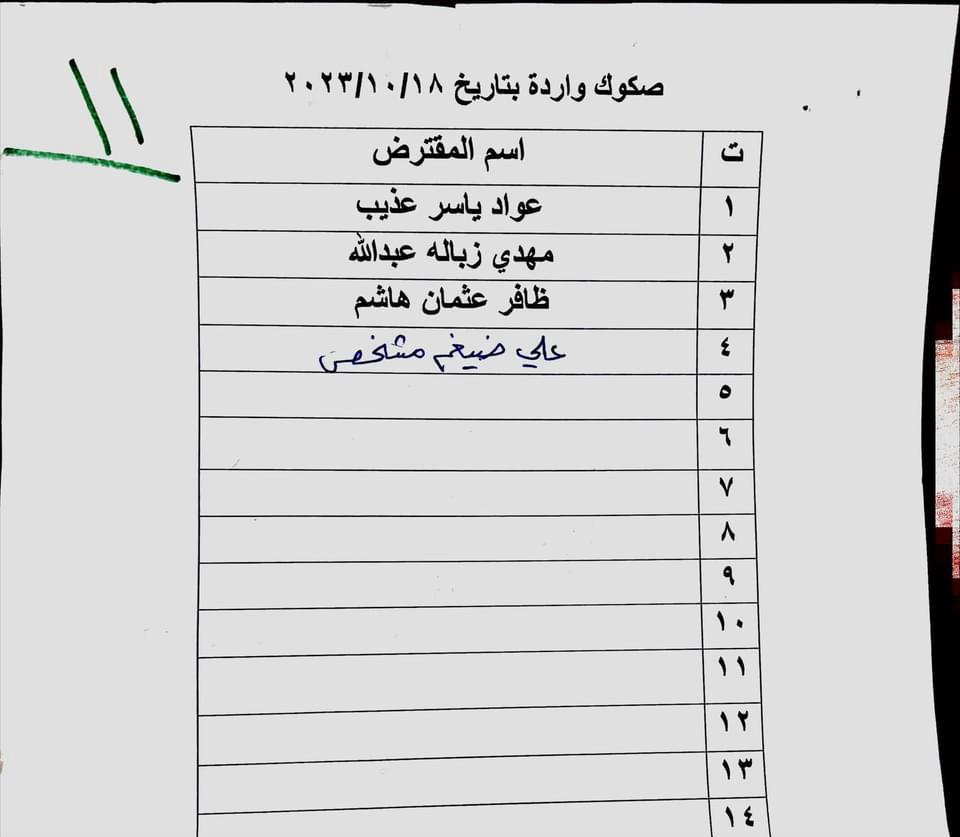 ١١
صكوك واردة بتاريخ ٢٠٢٣/١٠/١٨
ت اسم المقترض
١ عواد ياسر عذيب
٢ مهدي زباله عبدالله
٣ ظافر عثمان هاشم
٤ علي ضيغم مشخص
٥
٦
٧
٨
٩
١٠
١١
١٢
١٣
١٤